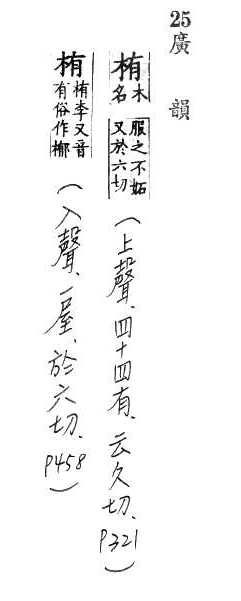 25廣韻
栯木名服之不妬又於六切(上聲、四十四有、云久切、P321)
栯栯李又音有俗作𣒼(入聲、一屋、於六切、P458)